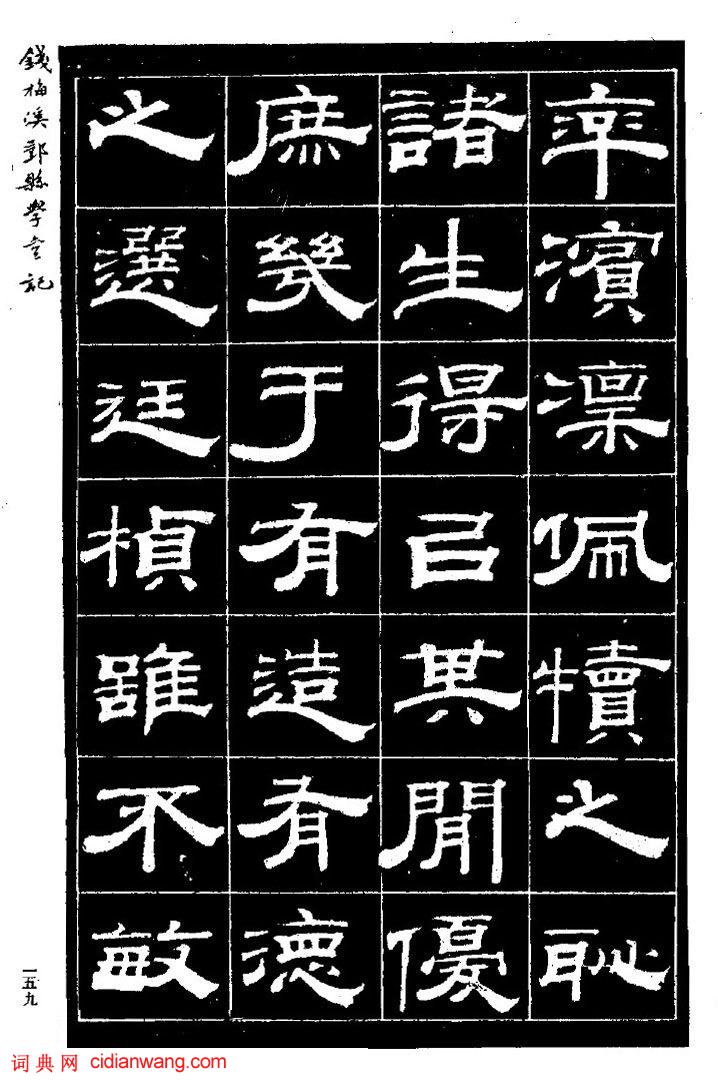 率濱凜佩犢之恥
諸生得㠯其閒優
庶幾于有造有德
之選廷楨雖不敏
錢梅溪縣學宮記
一五九
词典网 cidianwang.com